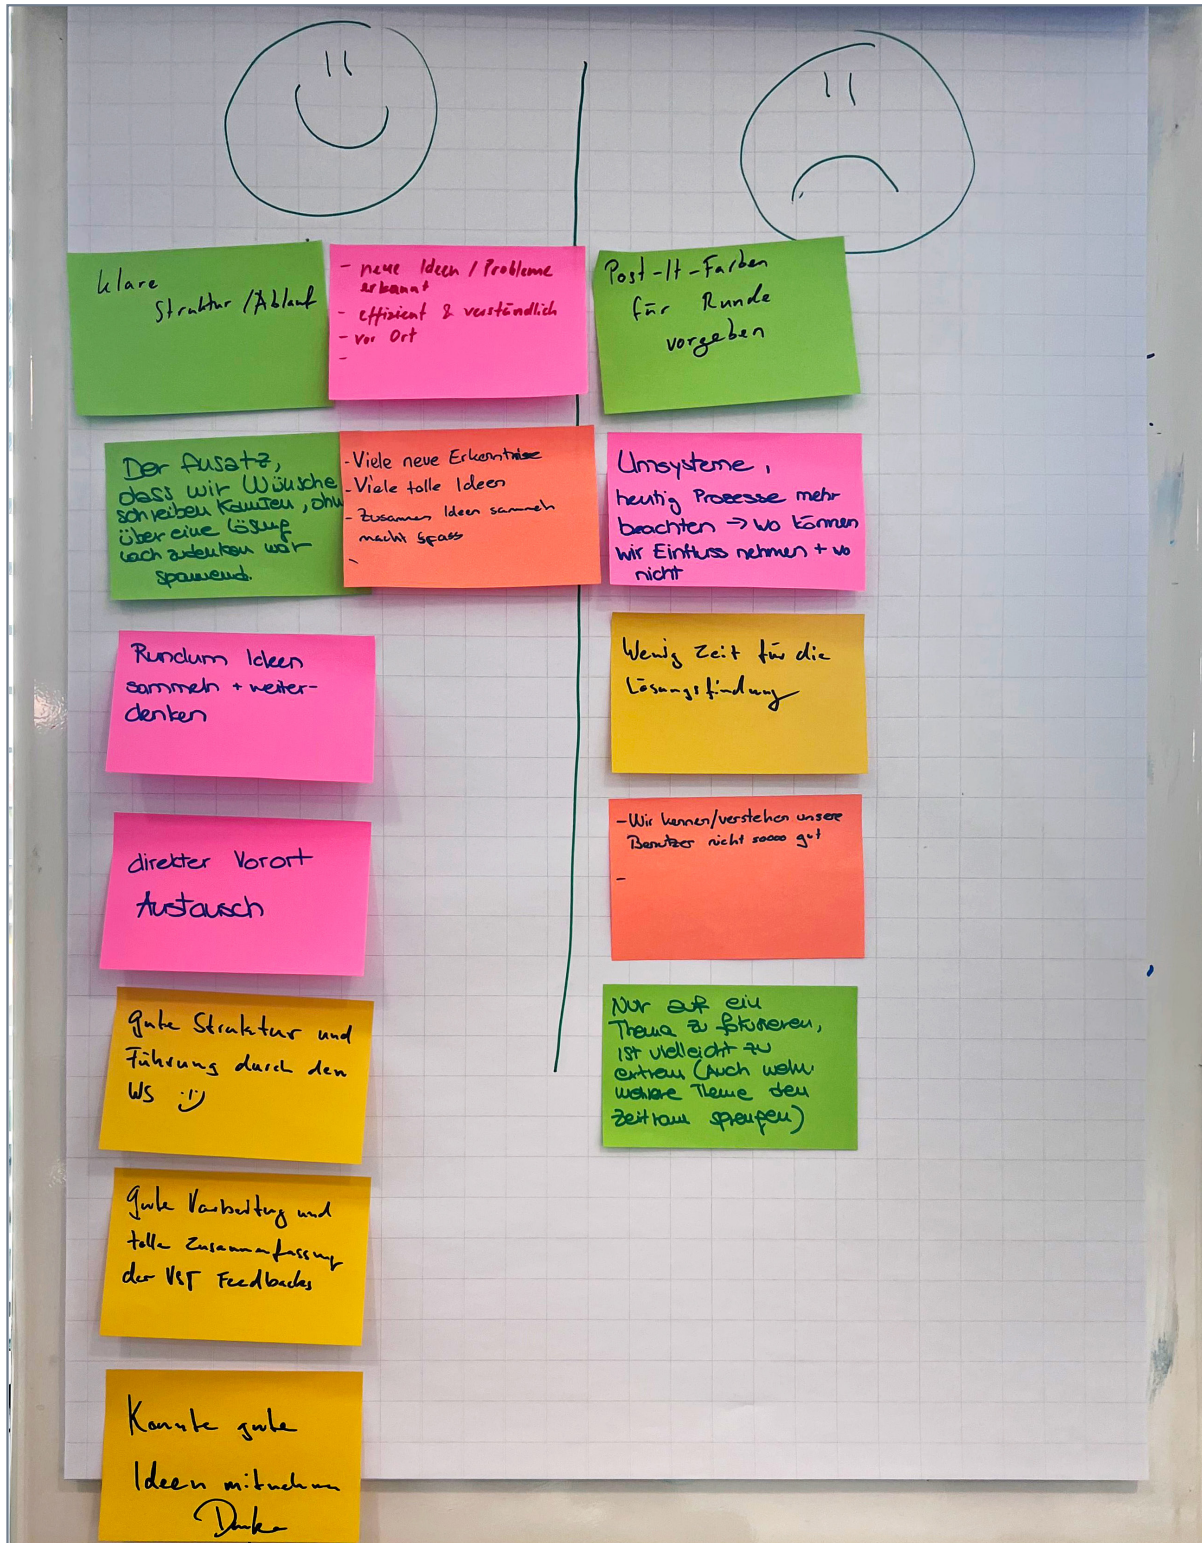 klare
Struktur / Ablauf
- neue Ideen / Probleme
erkannt
- effizient & verständlich
- vor Ort
-
Der Ansatz,
dass wir Wünsche
schreiben konnten, ohne
über eine Lösung
nach zudenken war
spannend.
- Viele neue Erkenntnisse
- Viele tolle Ideen
- Zusammen Ideen sammeln
macht Spass
-
Rundum Ideen
sammeln + weiter-
denken
direkter Vorort
Austausch
gute Struktur und
Führung durch den
WS :)
gute Vorbereitung und
tolle Zusammenfassung
der VST Feedbacks
Konnte gute
Ideen mitnehmen
Danke
Post-It-Farben
für Runde
vorgeben
Umsysteme,
heutig Prozesse mehr
beachten → wo können
wir Einfluss nehmen + wo
nicht
Wenig Zeit für die
Lösungsfindung
- Wir kennen/verstehen unsere
Benutzer nicht soooo gut
-
Nur auf ein
Thema zu fokusieren,
ist vielleicht zu
extrem (Auch wenn
mehrere Theme den
Zeitraum sprengen)